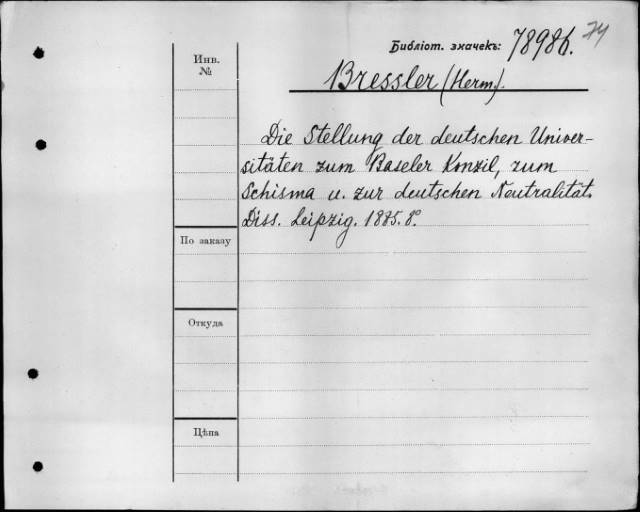 Библіот. значекъ: 78986. 74
Инв.
№
Bressler (Herm.).
Die Stellung der deutschen Univer-
sitäten zum Baseler Konzil, zum
Schisma u. zur deutschen Neutralität.
Diss. Leipzig. 1885. 8°
По заказу
Откуда
Цѣна